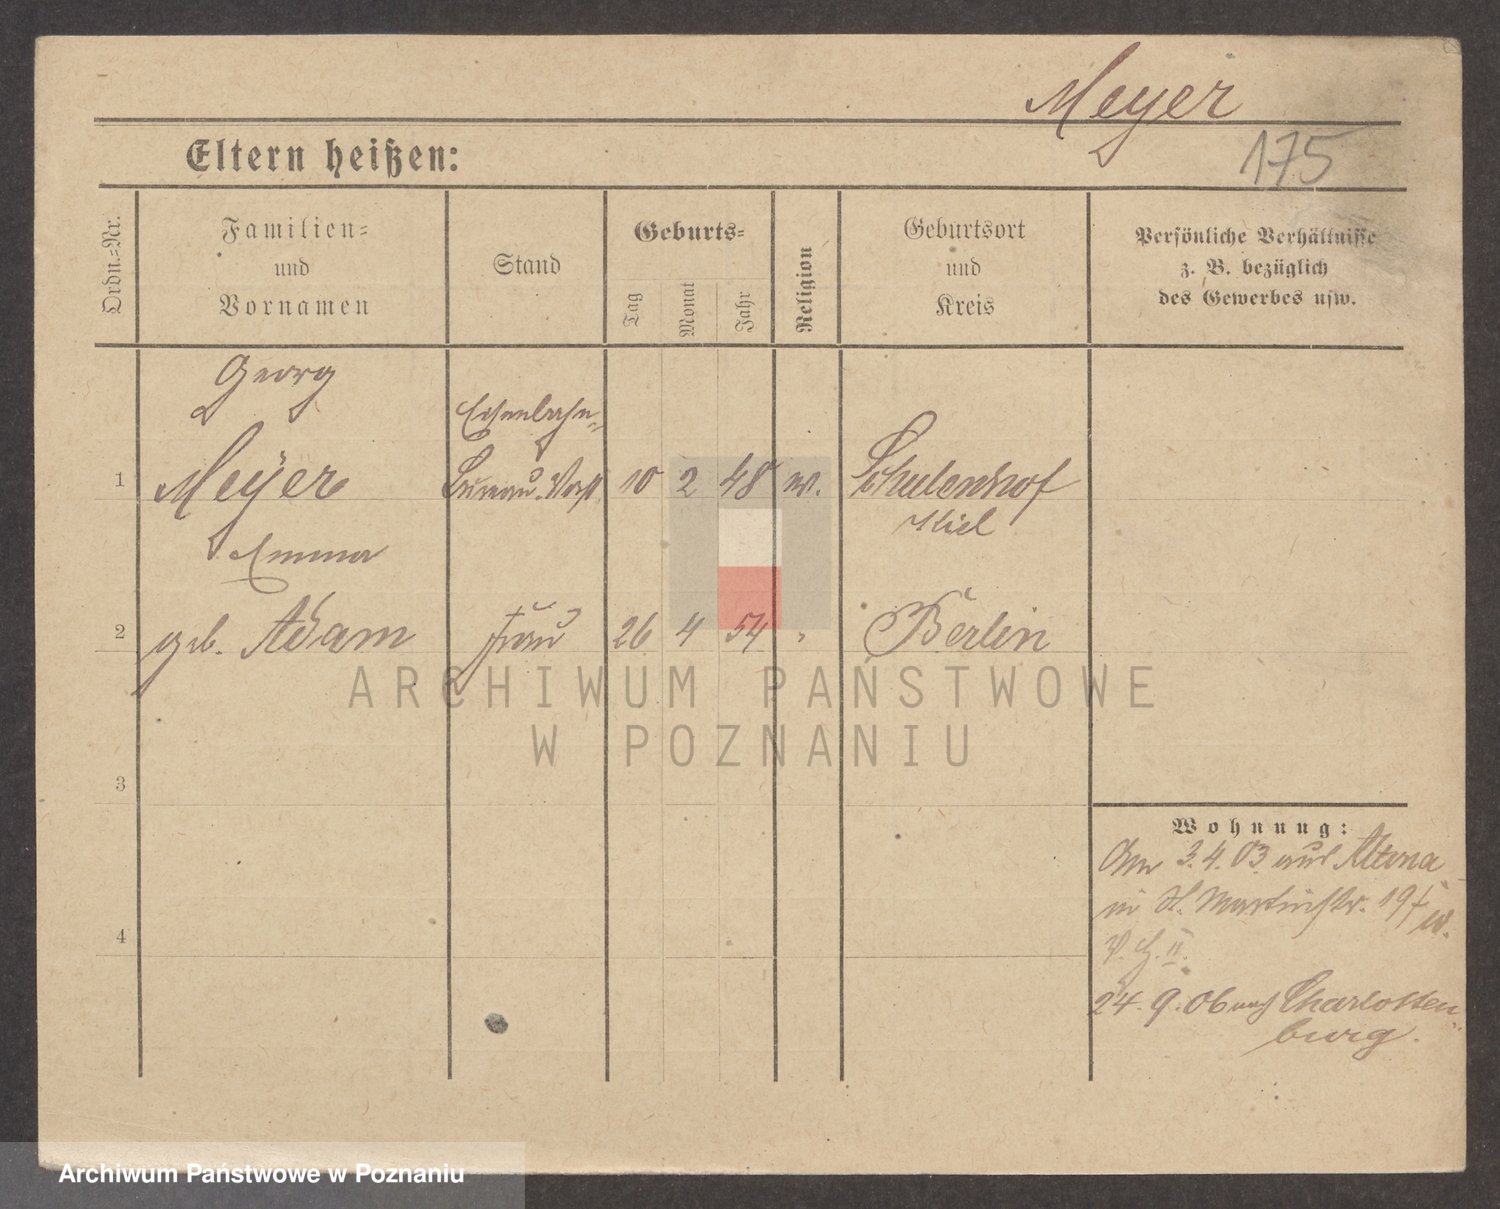 Meyer
175
Eltern heißen:
Ordn.-Nr.
Familien-
und
Vornamen
Stand
Geburts-
Tag
Monat
Jahr
Religion
Geburtsort
und
Kreis
Persönliche Verhältnisse
z. B. bezüglich
des Gewerbes usw.
Georg
Eisenbahn-
1 Meÿer Bureau-Vorst 10 2 48 ev. Schulenhof
Kiel
Emma
2 geb. Adam Frau 26 4 54 " Berlin
ARCHIWUM PAŃSTWOWE
W POZNANIU
3
4
Wohnung:
Am 3.4.03 aus Altona
in St. Martinstr. 19
24.9.06 nach Charlotten
burg.
Archiwum Państwowe w Poznaniu